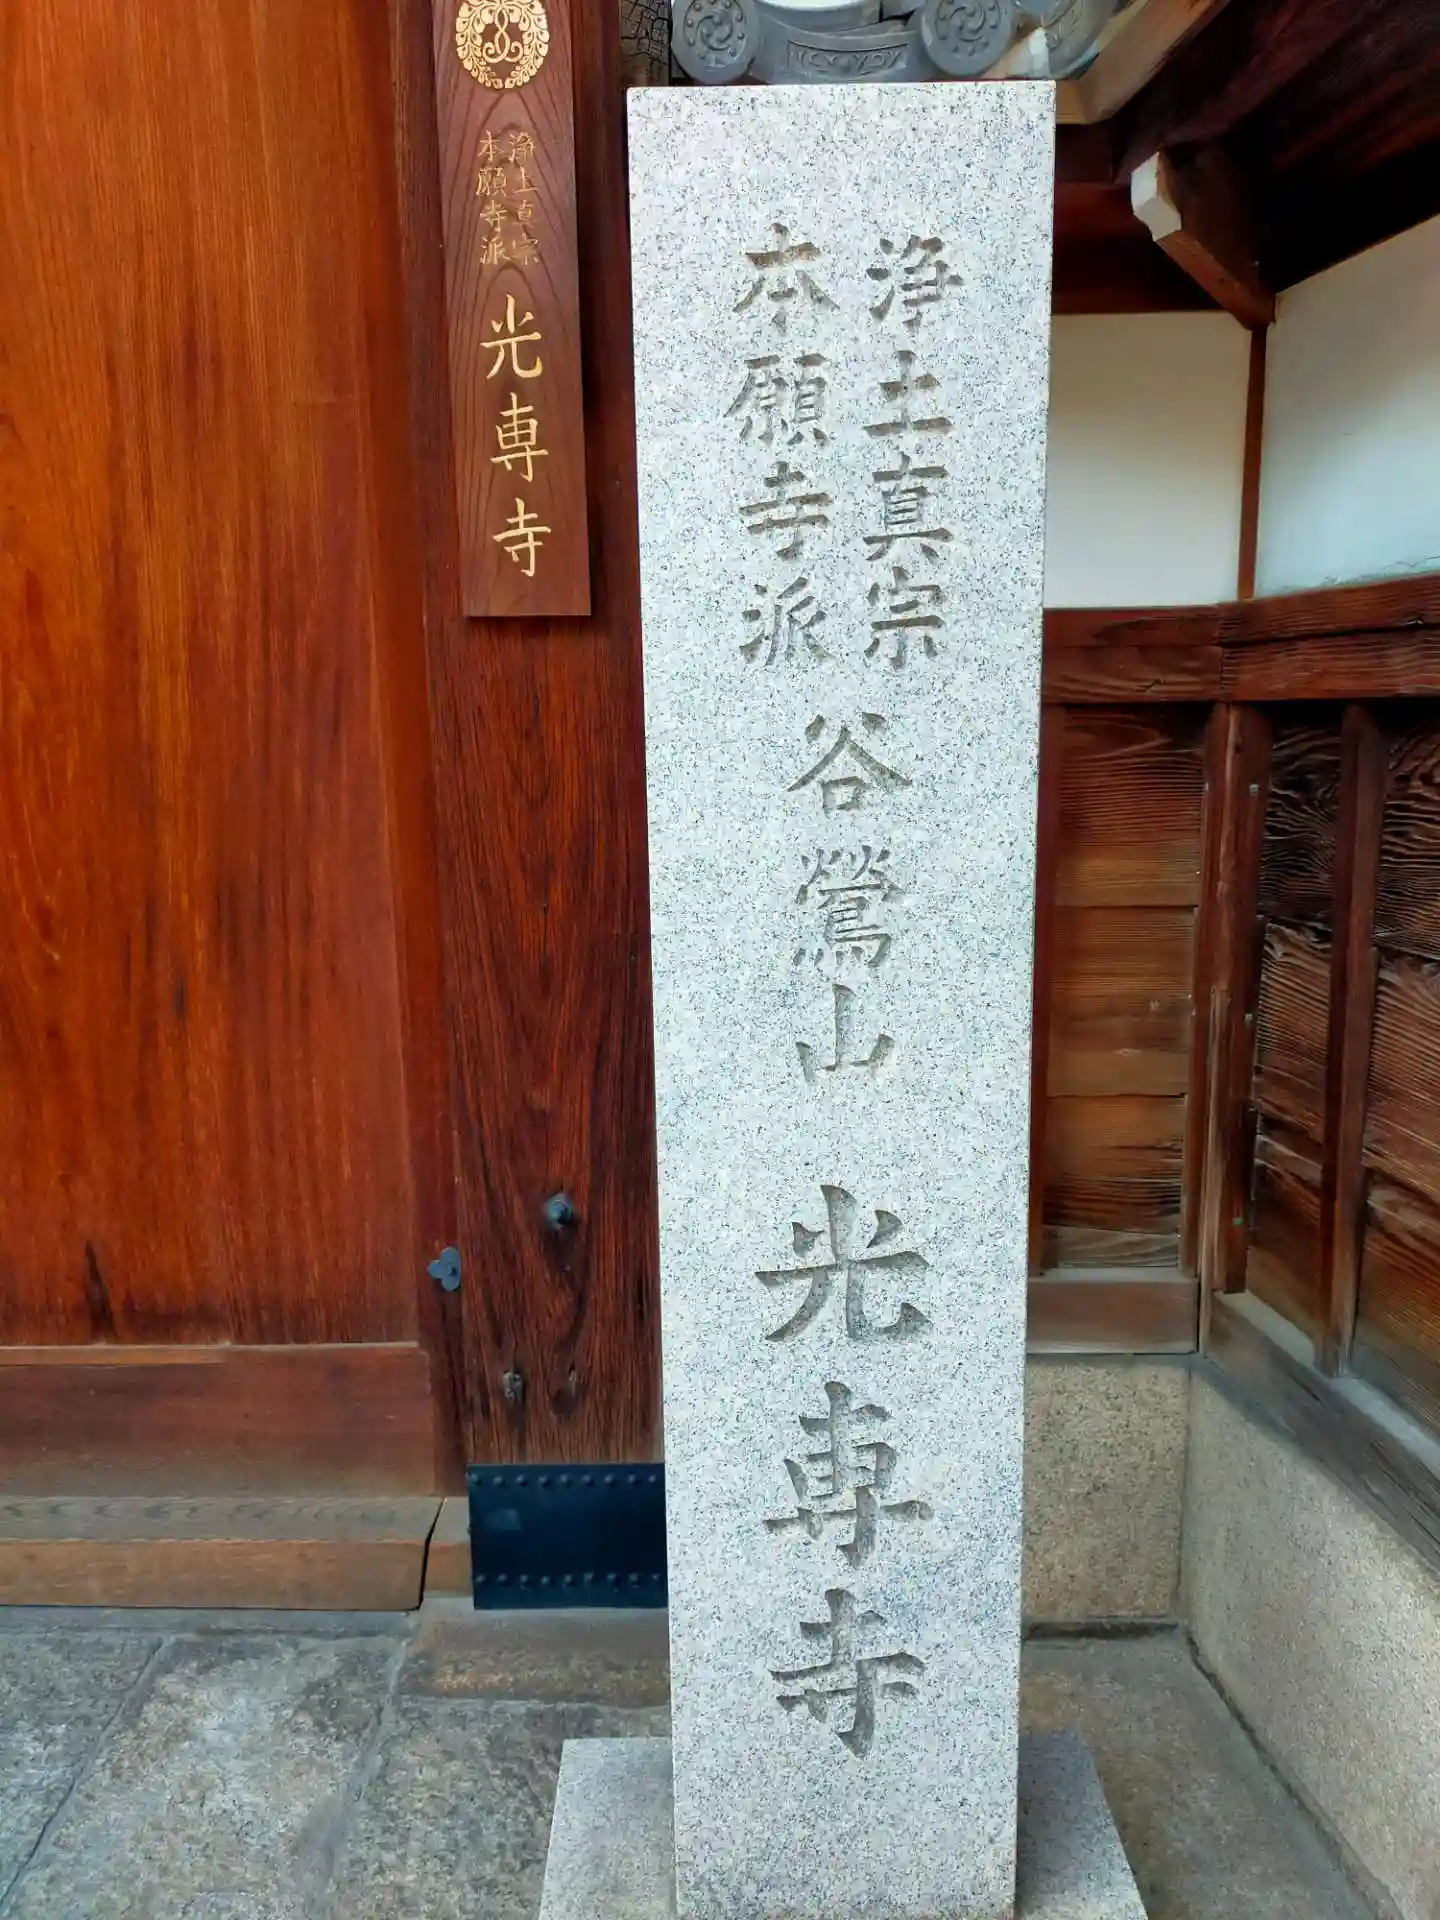 浄土真宗
本願寺派
谷鶯山
光専寺
浄土真宗
本願寺派
光専寺